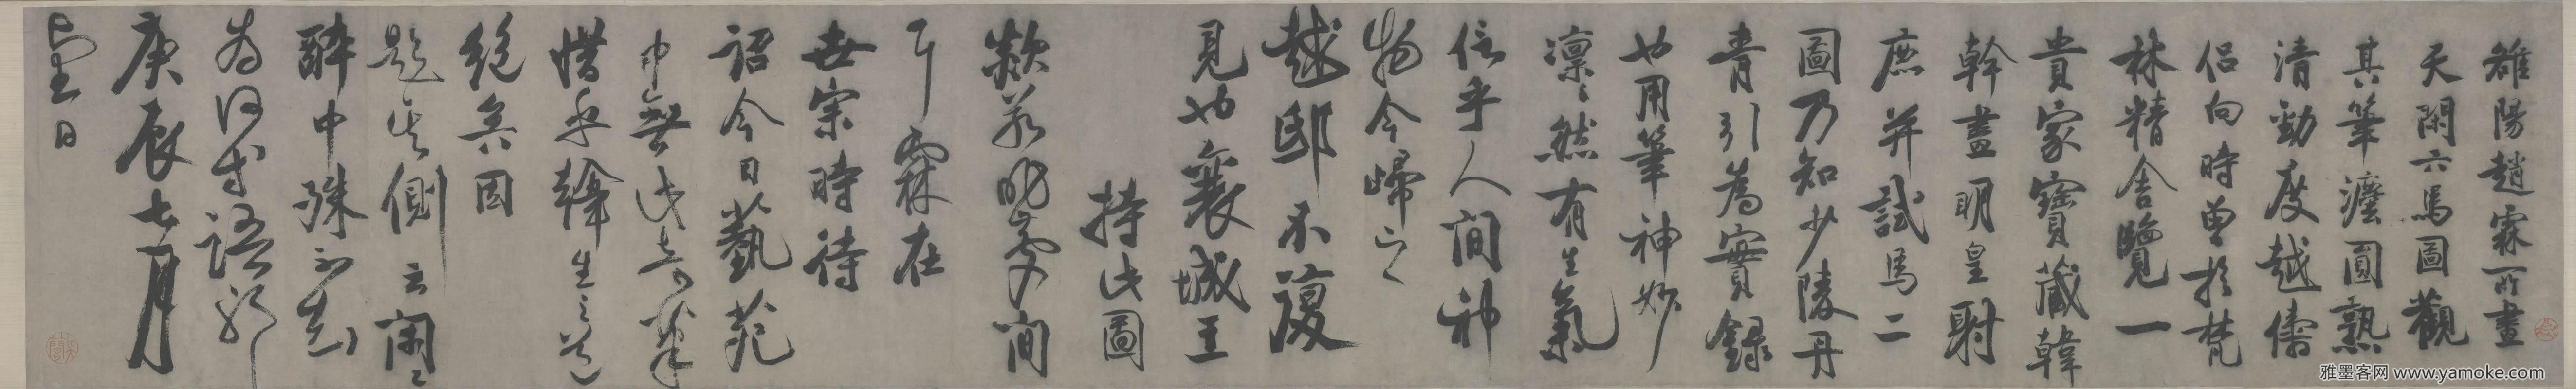 雒陽趙霖所畫
天閑六馬圖觀
其筆瀍圓熟
清勁度越儕
侣向時曽於梵
林精舍覽一
貴家寳藏韓
幹畫明皇射
鹿并試馬二
圖乃知少陵丹
青引為實録
也用筆神妙
凛〻然有生氣
信乎人間神
物今歸之
越邸不復
見也襄城王
持此圖
歎羡曠寥间
耳霖在
世宗時待
詔今日藝苑
中無此奇筆
惜乎韓生之道
絶矣因
題其側云閑〻
醉中殊不知
為何等語耶
庚辰七月
望日
雅墨客网 www.yamoke.com